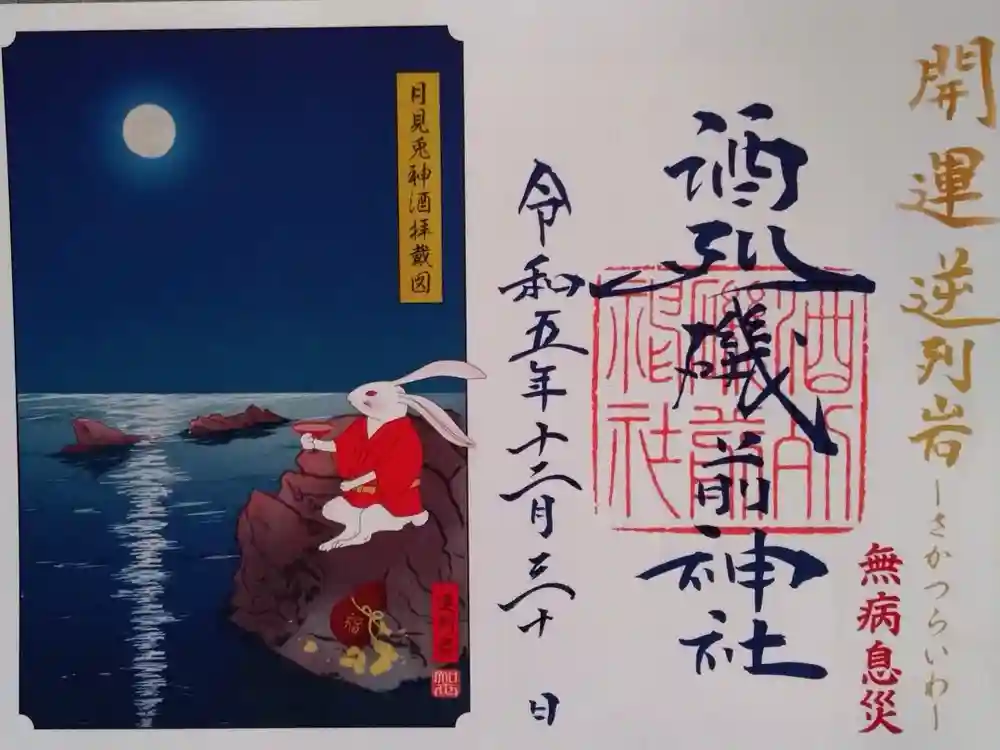 開運逆列岩
ーさかつらいわー
無病息災
酒列磯前神社
酒列磯前神社
令和五年十二月三十日
月見兎神酒拝戴図
逆列岩
福